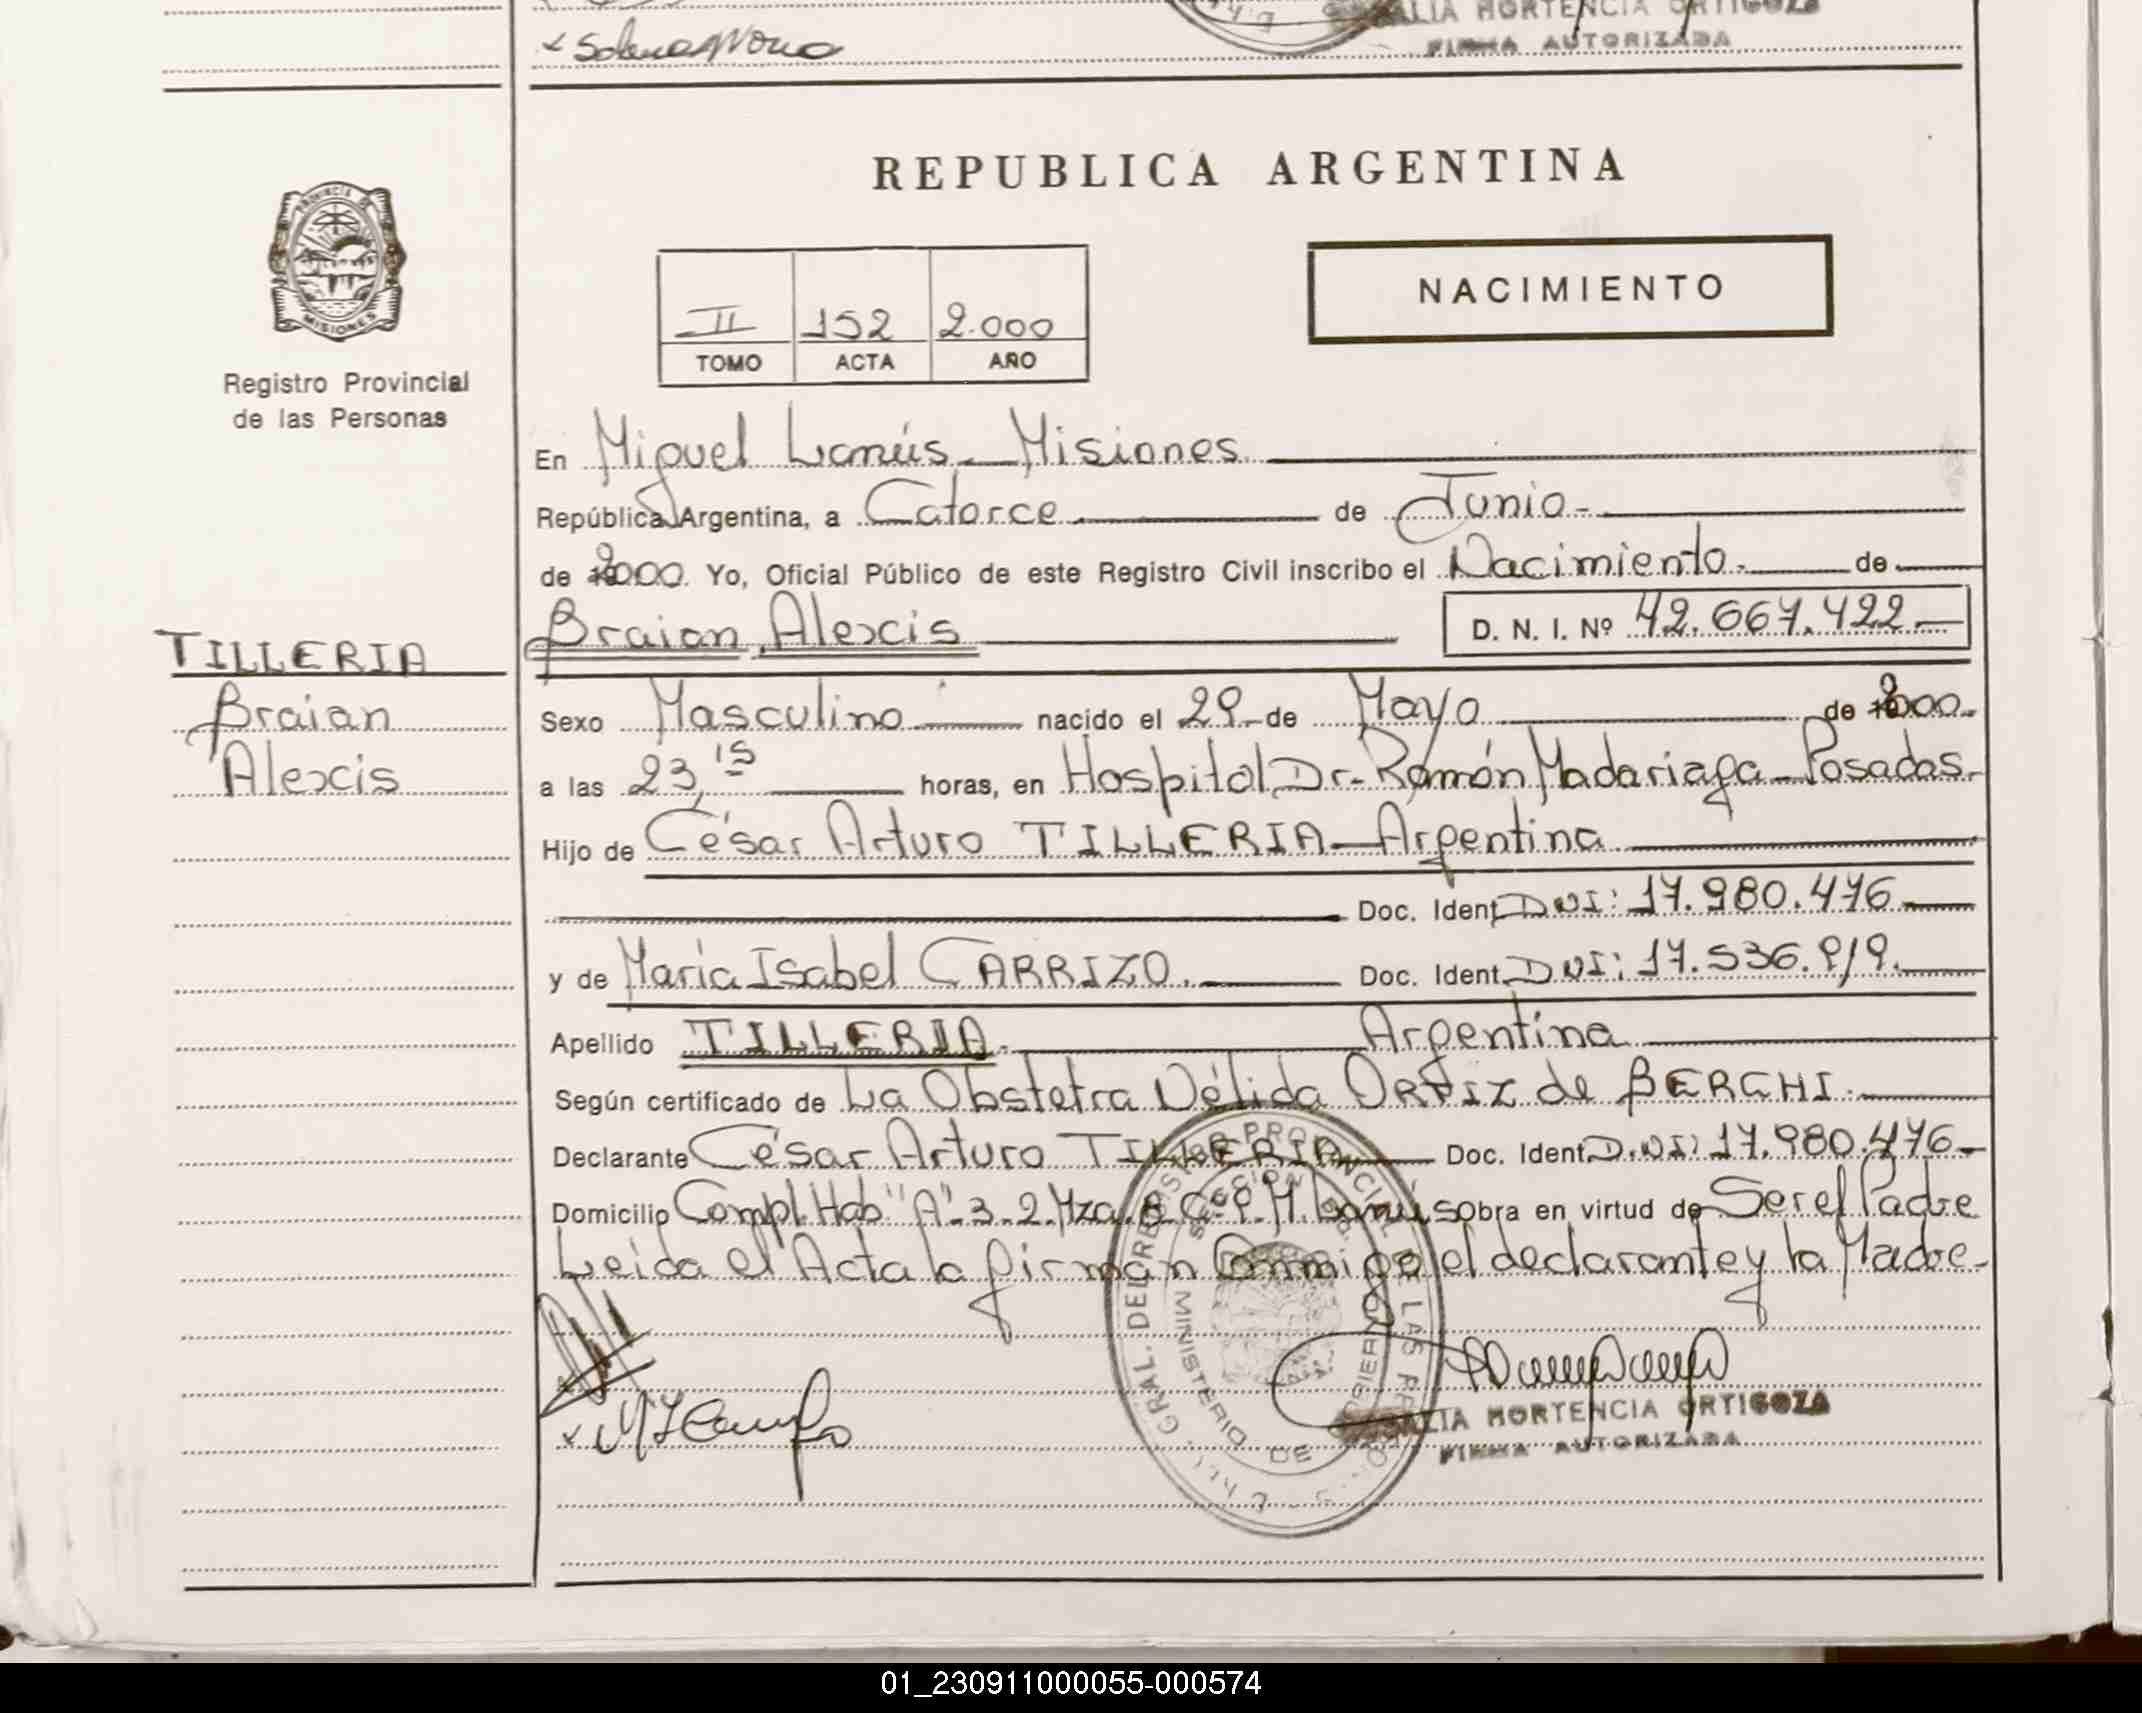 HORTENCIA ORTIGOZA
FIRMA AUTORIZADA
PROVINCIA DE
MISIONES
Registro Provincial
de las Personas
REPUBLICA ARGENTINA
NACIMIENTO
II 152 2.000
TOMO ACTA AÑO
En Miguel Lanús - Misiones
República Argentina, a Catorce de Junio -
de 2000. Yo, Oficial Público de este Registro Civil inscribo el Nacimiento - de
Braian Alexis D. N. I. Nº 42.667.422 -
TILLERIA
Braian
Alexis
Sexo Masculino nacido el 29 - de Mayo de 2000.
a las 23,15 horas, en Hospital Dr. Ramón Madariaga - Posadas.
Hijo de César Arturo TILLERIA - Argentina
Doc. Ident. DNI: 17.980.476
y de María Isabel CARRIZO. Doc. Ident. DNI: 17.536.919.
Apellido TILLERIA. Argentina
Según certificado de La Obstetra Nélida ORTIZ de BERGHI.
Declarante César Arturo TILLERIA Doc. Ident. D.NI: 17.980.476 -
Domicilio Compl. Hab "A" 3-2 Mza. 8 C-9. M. Lanús obra en virtud de Ser el Padre
Leída el Acta la firman Conmigo el declarante y la Madre -
HORTENCIA ORTIGOZA
FIRMA AUTORIZADA
01_230911000055-000574